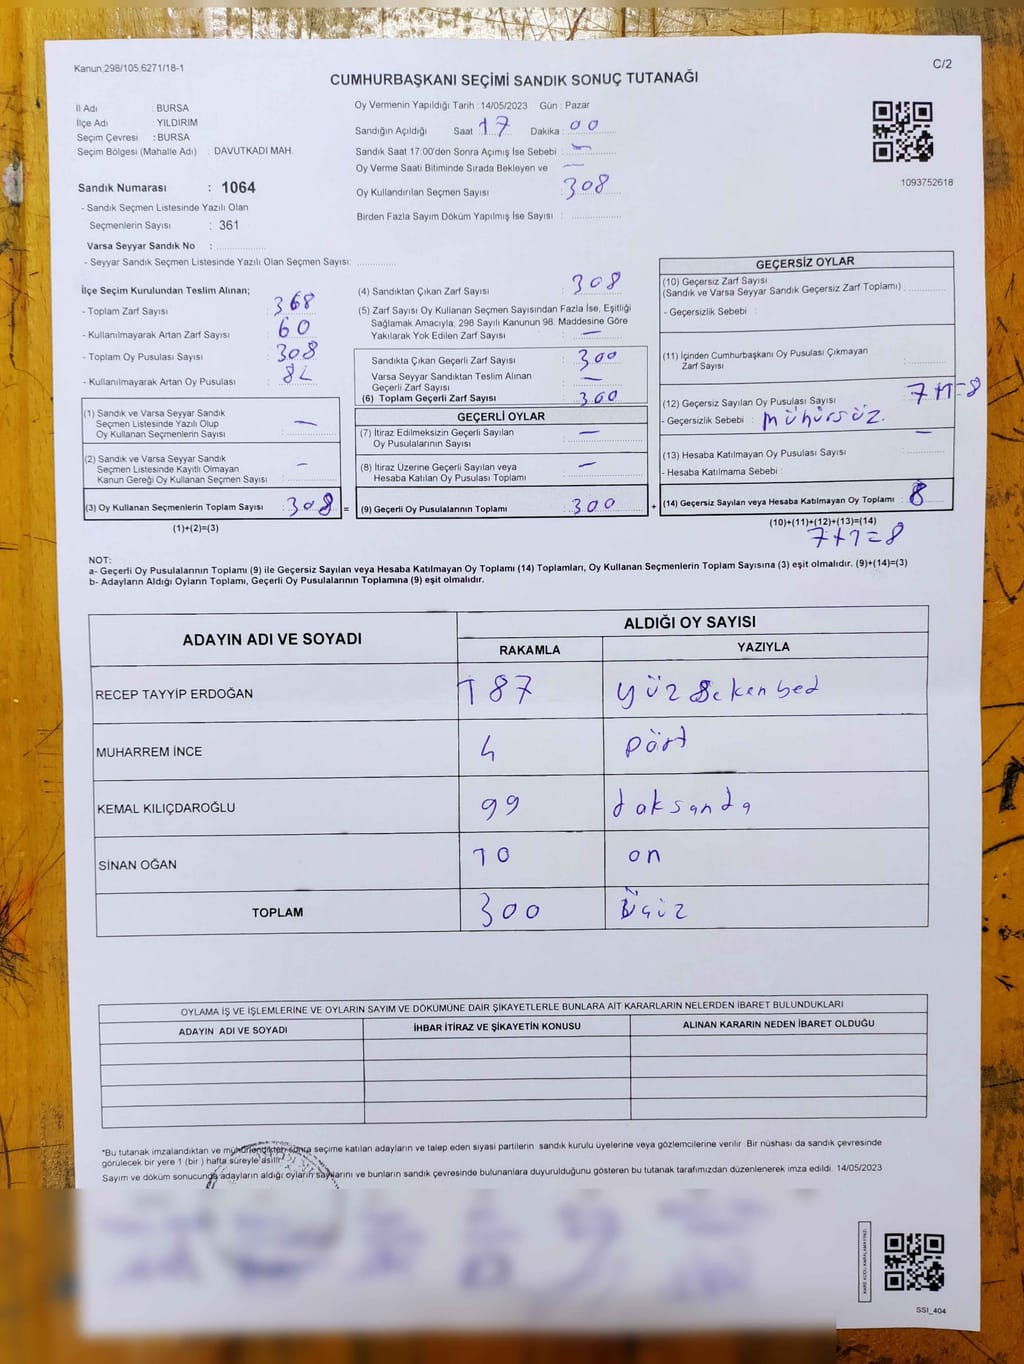 Kanun:298/105,6271/18-1
C/2
CUMHURBAŞKANI SEÇİMİ SANDIK SONUÇ TUTANAĞI
İl Adı : BURSA
İlçe Adı : YILDIRIM
Seçim Çevresi : BURSA
Seçim Bölgesi (Mahalle Adı) : DAVUTKADI MAH.
Sandık Numarası : 1064
- Sandık Seçmen Listesinde Yazılı Olan
Seçmenlerin Sayısı : 361
Varsa Seyyar Sandık No :
- Seyyar Sandık Seçmen Listesinde Yazılı Olan Seçmen Sayısı:
Oy Vermenin Yapıldığı Tarih : 14/05/2023 Gün : Pazar
Sandığın Açıldığı Saat : 17 Dakika : 00
Sandık Saat 17:00'den Sonra Açımış İse Sebebi : —
Oy Verme Saati Bitiminde Sırada Bekleyen ve —
Oy Kullandırılan Seçmen Sayısı : 308
Birden Fazla Sayım Döküm Yapılmış İse Sayısı :
1093752618
İlçe Seçim Kurulundan Teslim Alınan;
- Toplam Zarf Sayısı : 368
- Kullanılmayarak Artan Zarf Sayısı : 60
- Toplam Oy Pusulası Sayısı : 308
- Kullanılmayarak Artan Oy Pusulası :
(1) Sandık ve Varsa Seyyar Sandık
Seçmen Listesinde Yazılı Olup
Oy Kullanan Seçmenlerin Sayısı : —
(2) Sandık ve Varsa Seyyar Sandık
Seçmen Listesinde Kayıtlı Olmayan
Kanun Gereği Oy Kullanan Seçmen Sayısı : —
(3) Oy Kullanan Seçmenlerin Toplam Sayısı : 308 =
(1)+(2)=(3)
(4) Sandıktan Çıkan Zarf Sayısı : 308
(5) Zarf Sayısı Oy Kullanan Seçmen Sayısından Fazla İse, Eşitliği
Sağlamak Amacıyla, 298 Sayılı Kanunun 98. Maddesine Göre
Yakılarak Yok Edilen Zarf Sayısı : —
Sandıkta Çıkan Geçerli Zarf Sayısı : 300
Varsa Seyyar Sandıktan Teslim Alınan
Geçerli Zarf Sayısı : —
(6) Toplam Geçerli Zarf Sayısı : 300
GEÇERLİ OYLAR
(7) İtiraz Edilmeksizin Geçerli Sayılan
Oy Pusulalarının Sayısı : —
(8) İtiraz Üzerine Geçerli Sayılan veya
Hesaba Katılan Oy Pusulası Toplamı : —
(9) Geçerli Oy Pusulalarının Toplamı : 300 +
GEÇERSİZ OYLAR
(10) Geçersiz Zarf Sayısı
(Sandık ve Varsa Seyyar Sandık Geçersiz Zarf Toplamı) :
- Geçersizlik Sebebi :
(11) İçinden Cumhurbaşkanı Oy Pusulası Çıkmayan
Zarf Sayısı :
(12) Geçersiz Sayılan Oy Pusulası Sayısı : 7+1=8
- Geçersizlik Sebebi : Mühürsüz.
(13) Hesaba Katılmayan Oy Pusulası Sayısı : —
- Hesaba Katılmama Sebebi :
(14) Geçersiz Sayılan veya Hesaba Katılmayan Oy Toplamı : 8
(10)+(11)+(12)+(13)=(14)
7+1=8
NOT:
a- Geçerli Oy Pusulalarının Toplamı (9) ile Geçersiz Sayılan veya Hesaba Katılmayan Oy Toplamı (14) Toplamları, Oy Kullanan Seçmenlerin Toplam Sayısına (3) eşit olmalıdır. (9)+(14)=(3)
b- Adayların Aldığı Oyların Toplamı, Geçerli Oy Pusulalarının Toplamına (9) eşit olmalıdır.
ADAYIN ADI VE SOYADI ALDIĞI OY SAYISI
RAKAMLA YAZIYLA
RECEP TAYYİP ERDOĞAN 187 yüz Seken bed
MUHARREM İNCE 4 Dört
KEMAL KILIÇDAROĞLU 99 doksanda
SİNAN OĞAN 10 on
TOPLAM 300
OYLAMA İŞ VE İŞLEMLERİNE VE OYLARIN SAYIM VE DÖKÜMÜNE DAİR ŞİKAYETLERLE BUNLARA AİT KARARLARIN NELERDEN İBARET BULUNDUKLARI
ADAYIN ADI VE SOYADI İHBAR İTİRAZ VE ŞİKAYETİN KONUSU ALINAN KARARIN NEDEN İBARET OLDUĞU
*Bu tutanak imzalandıktan ve mühürlendikten sonra seçime katılan adayların ve talep eden siyasi partilerin sandık kurulu üyelerine veya gözlemcilerine verilir .Bir nüshası da sandık çevresinde
görülecek bir yere 1 (bir ) hafta süreyle asılır.
Sayım ve döküm sonucunda adayların aldığı oyların sayılarını ve bunların sandık çevresinde bulunanlara duyurulduğunu gösteren bu tutanak tarafımızdan düzenlenerek imza edildi. 14/05/2023
KARE KODU KARALAMAYINIZ!
SSI_404